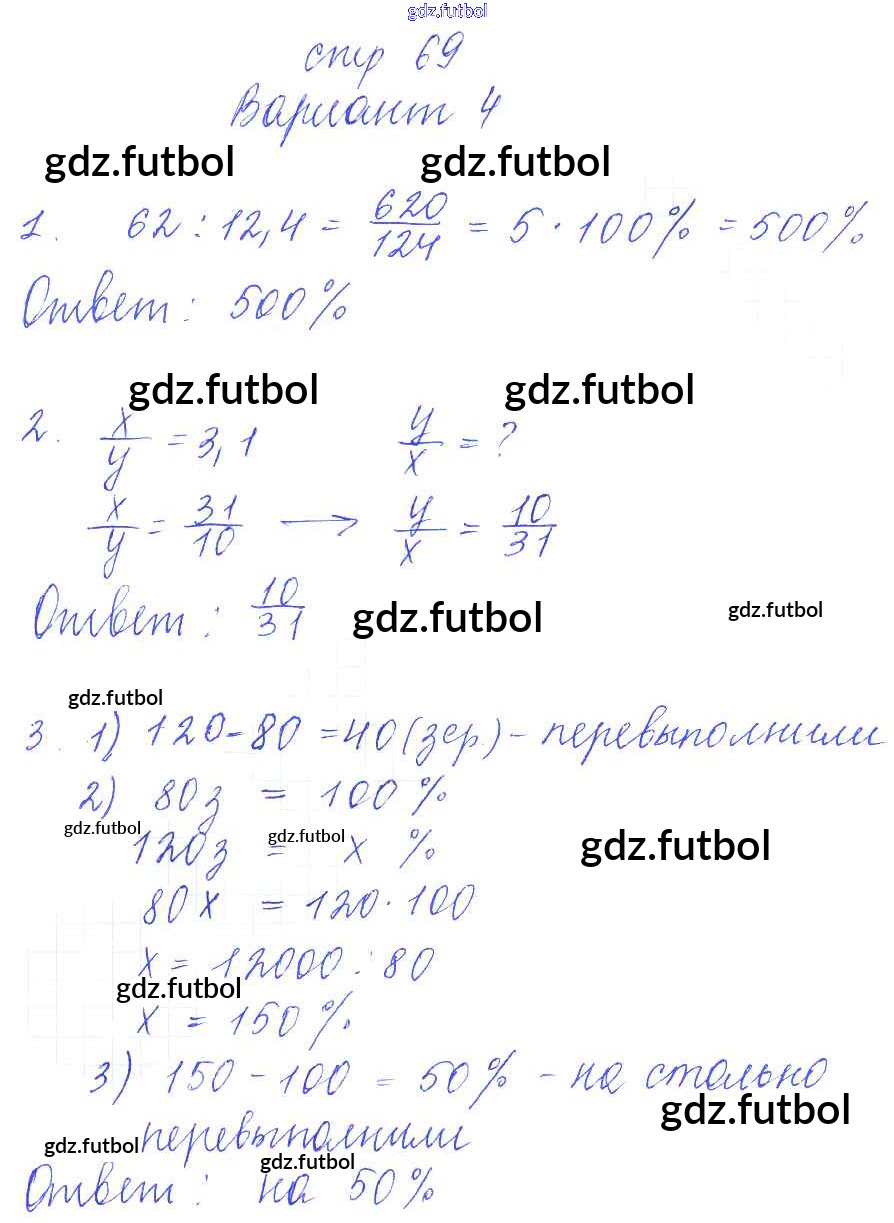 gdz.futbol
стр 69
Вариант 4
gdz.futbol gdz.futbol
1. 62 : 12,4 = 620/124 = 5 · 100% = 500%
Ответ: 500%
gdz.futbol gdz.futbol
2. x/y = 3,1 y/x = ?
x/y = 31/10 → y/x = 10/31
Ответ: 10/31
gdz.futbol gdz.futbol
gdz.futbol
3. 1) 120-80 = 40 (зер.) - перевыполнили
2) 80з = 100%
gdz.futbol gdz.futbol gdz.futbol
120з = x %
80x = 120·100
x = 12000 : 80
gdz.futbol
x = 150%
3) 150 - 100 = 50% - на стально
gdz.futbol
перевыполнили
gdz.futbol gdz.futbol
Ответ: на 50%